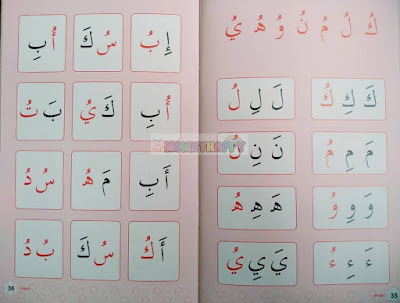 كُ لُ مُ نُ وُ هُ يُ
كَ كِ كُ لَ لِ لُ
مَ مِ مُ نَ نِ نُ
وَ وِ وُ هَ هِ هُ
ءَ ءِ ءُ يَ يِ يُ
35
إِ بُ سُ كَ أُ بِ
أُ بِ كَ يُ بَ تُ
أَ بِ مَ هُ سُ دُ
أَ كُ سُ كَ بُ دُ
36